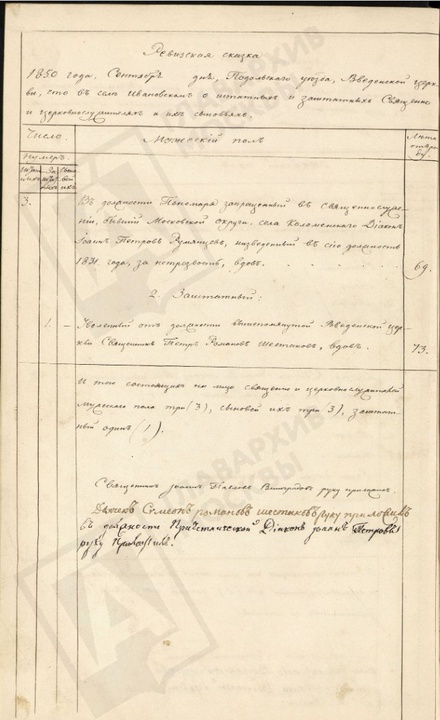 Ревизская сказка
1850 года. Сентября дня, Подольского уезда, Введенской церк-
ви, что в селе Ивановском о штатных и заштатных Священно
и церковнослужителях и их сыновьях.
Число. Мужеский пол Лета
Нумер.
3. В должности Пономаря запрещенный в священнослуже-
нии, бывший Московской округи, села Коломенского Диакон
Иоанн Петров Румянцев, низведенный в сию должность
1831 года, за нетрезвость, вдов. 69.
2. Заштатный:
1. – Уволенный от должности вышепомянутой Введенской цер-
кви Священник Петр Романов Шестаков, вдов. 73.
Итого состоящих на лицо священно и церковнослужителей
мужеского пола три (3), сыновей их три (3), заштат-
ный один (1).
Священник Иоанн Алексеев Виноградов руку приложил
Дьячек Семеон романов шестаков руку приложил
в должности Диакон иоанн Петров
руку приложил.
ГЛАВАРХИВ
МОСКВЫ